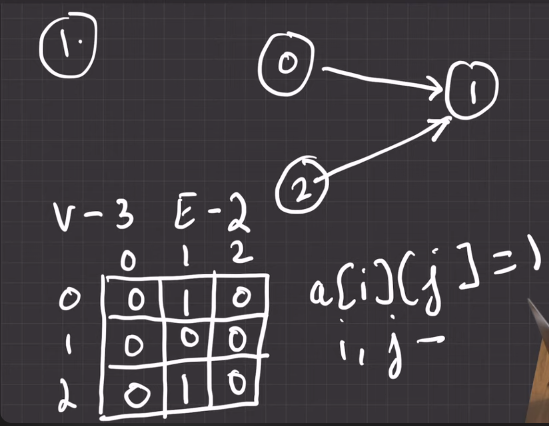 1.
0
1
2
V - 3 E - 2
0 1 2
0 0 1 0
1 0 0 0
2 0 1 0
a[i][j] = 1
i, j -